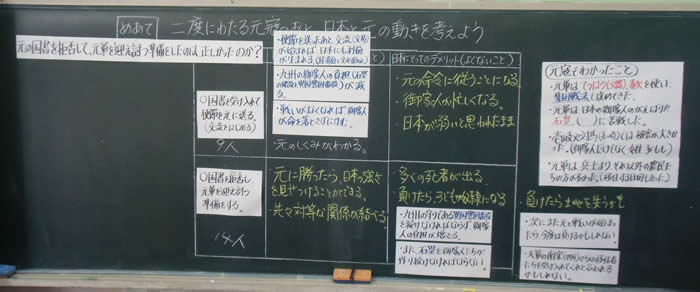 めあて 二度にわたる元寇のあと、日本と元の動きを考えよう
元の国書を拒否して、元軍を迎え討つ準備をしたのは正しかったのか?
・使節を送ったあと、交流(交易)
が始まれば、日本にも利益
が生まれる。
・九州の御家人の負担(石塁
の建設と異国警固番役)が
減る。
・戦いがなくなれば、御家人
が命を落とさずにすむ。
・元のしくみがわかる。
日本にとってのデメリット(よくないこと)
・元の命令に従うことになる。
・御家人が忙しくなる。
・日本が弱いと思われたまま
○国書を受け入れて
使節を元に送る。
(交流をはじめる)
9人
○国書を拒否し、
元軍を迎え討つ
準備をする。
14人
・元に勝ったら、日本の強さ
を見せつけることができる。
・先々対等な関係が結べる。
・多くの死者が出る。
・負けたら、子どもが奴隷になる
・九州の守りである異国警固番役
を続けなければならず、御家人
の負担が増える。
・また、石塁を御家人たちが
作り続けなければならない。
(元寇でわかったこと)
・元軍は「てつはう」(火薬)、毒矢を使い、
集団戦法で攻めてきた。
・元軍は日本の御家人のがんばりや
石塁
に苦戦した。
・壱岐や対馬
では被害が大き
かった。(御家人だけでなく女性、子ども)
・元軍は兵士より、それ以外の農民た
ちの方が多かった。
負けたら土地を失うかも
・次にまた元と戦いが始まっ
たら、今度は負けるかもしれない。